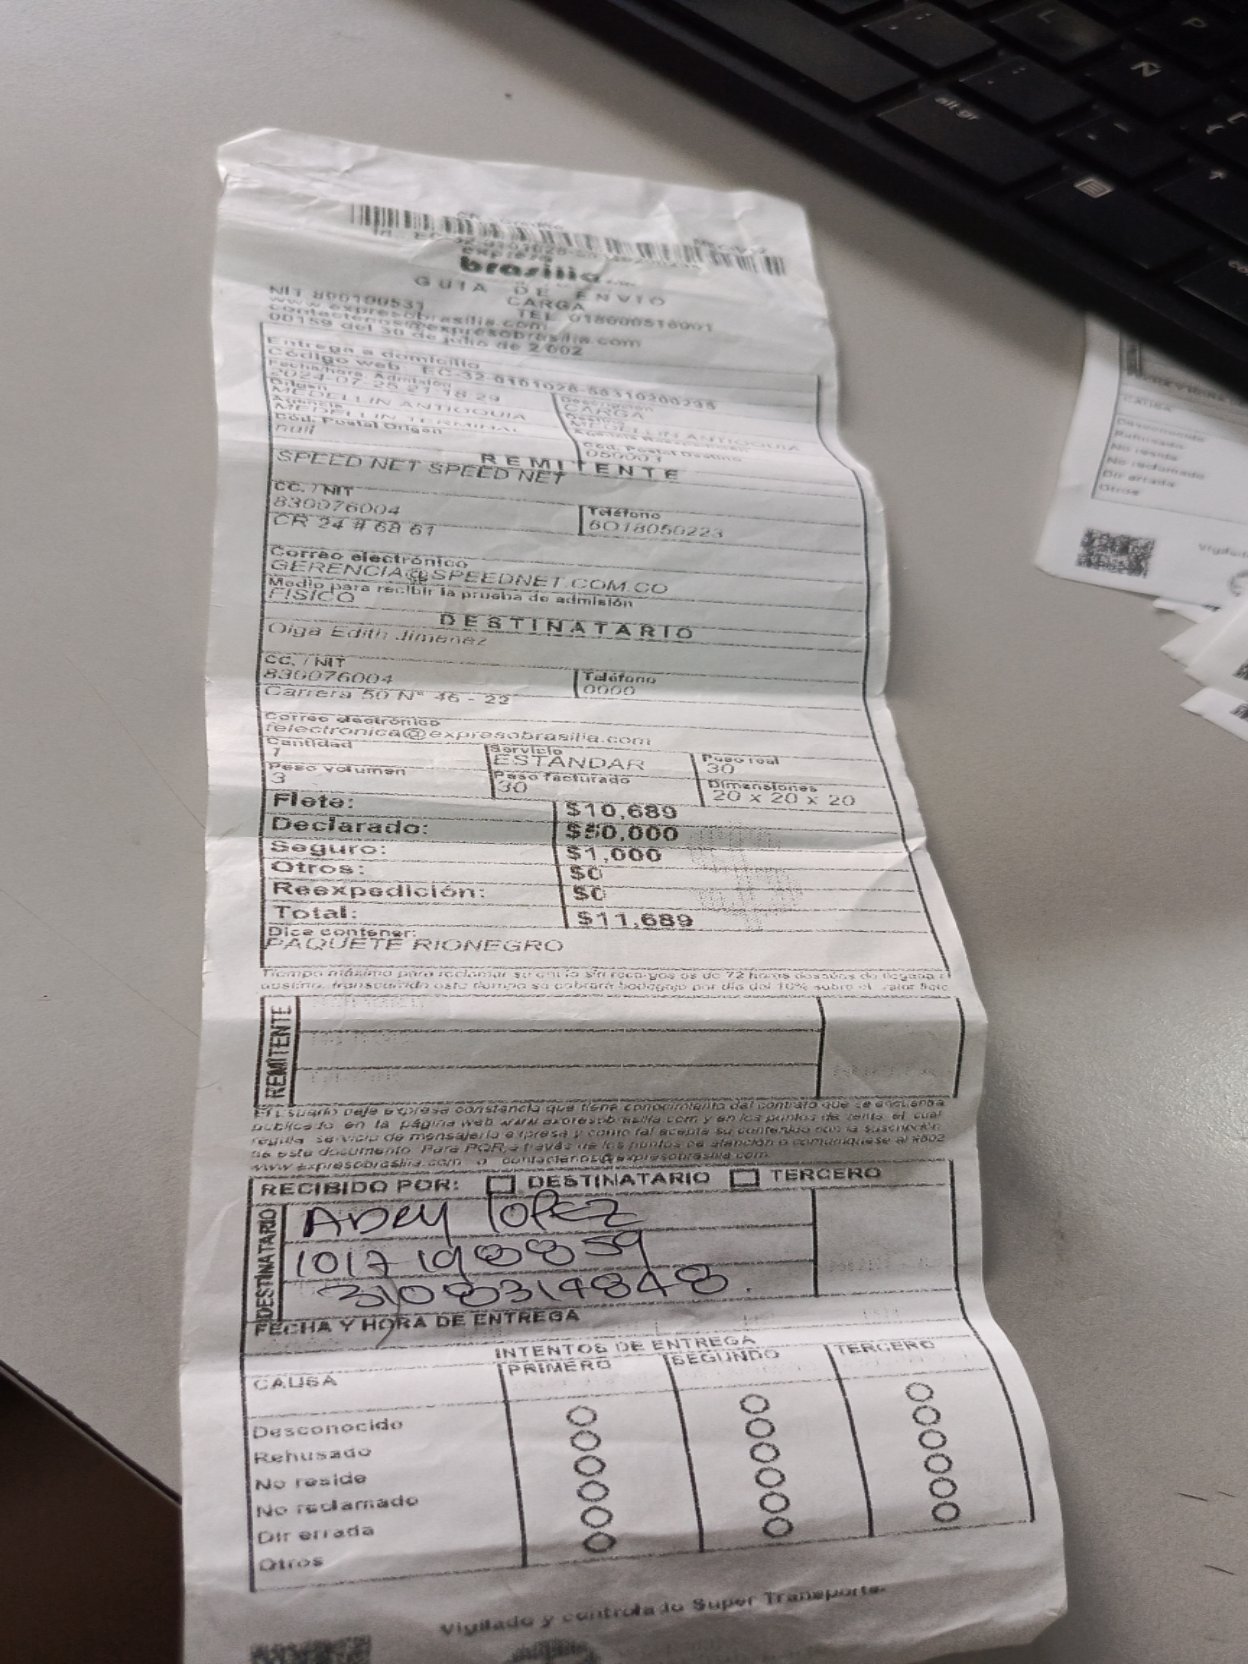 expreso
brasilia
GUIA DE ENVIO
CARGA
NIT 890100531 TEL 018000516001
www.expresobrasilia.com
contactenos@expresobrasilia.com
00159 del 30 de julio de 2002
Entrega a domicilio
Código web: EC-32-0101028-56310200235
Fecha/hora Admisión
2024-07-25 21 18 29
Descripción
CARGA
Origen
MEDELLIN ANTIOQUIA
Destino
MEDELLIN ANTIOQUIA
Agencia
MEDELLIN TERMINAL
Cód. Postal Origen
null
Cód. Postal Destino
050001
REMITENTE
SPEED NET SPEED NET
CC. / NIT
830076004
Teléfono
6018050223
CR 24 # 68 61
Correo electrónico
GERENCIA@SPEEDNET.COM.CO
Medio para recibir la prueba de admisión
FISICO
DESTINATARIO
Olga Edith Jimenez
CC. / NIT
830076004
Teléfono
0000
Carrera 50 N° 46 - 22
Correo electrónico
felectronica@expresobrasilia.com
Cantidad
1
Servicio
ESTANDAR
Peso real
30
Peso volumen
3
Peso facturado
30
Dimensiones
20 x 20 x 20
Flete: $10,689
Declarado: $50,000
Seguro: $1,000
Otros: $0
Reexpedición: $0
Total: $11,689
Dice contener:
PAQUETE RIONEGRO
Tiempo máximo para reclamar su envío sin recargos es de 72 horas después de llegada a
destino, transcurrido este tiempo se cobrará bodegaje por día del 10% sobre el valor flete
REMITENTE
El usuario deja expresa constancia que tiene conocimiento del contrato que se encuentra
publicado en la página web www.expresobrasilia.com y en los puntos de venta, el cual
regula servicio de mensajería expresa y como tal acepta su contenido con la suscripción
de este documento. Para PQR, a través de los puntos de atención o comuníquese al #602
www.expresobrasilia.com o contactenos@expresobrasilia.com
RECIBIDO POR: DESTINATARIO TERCERO
DESTINATARIO
ADRY LOPEZ
1017198859
3108319848.
FECHA Y HORA DE ENTREGA
INTENTOS DE ENTREGA
CAUSA PRIMERO SEGUNDO TERCERO
Desconocido
Rehusado
No reside
No reclamado
Dir errada
Otros
Vigilado y controlado Super Transporte